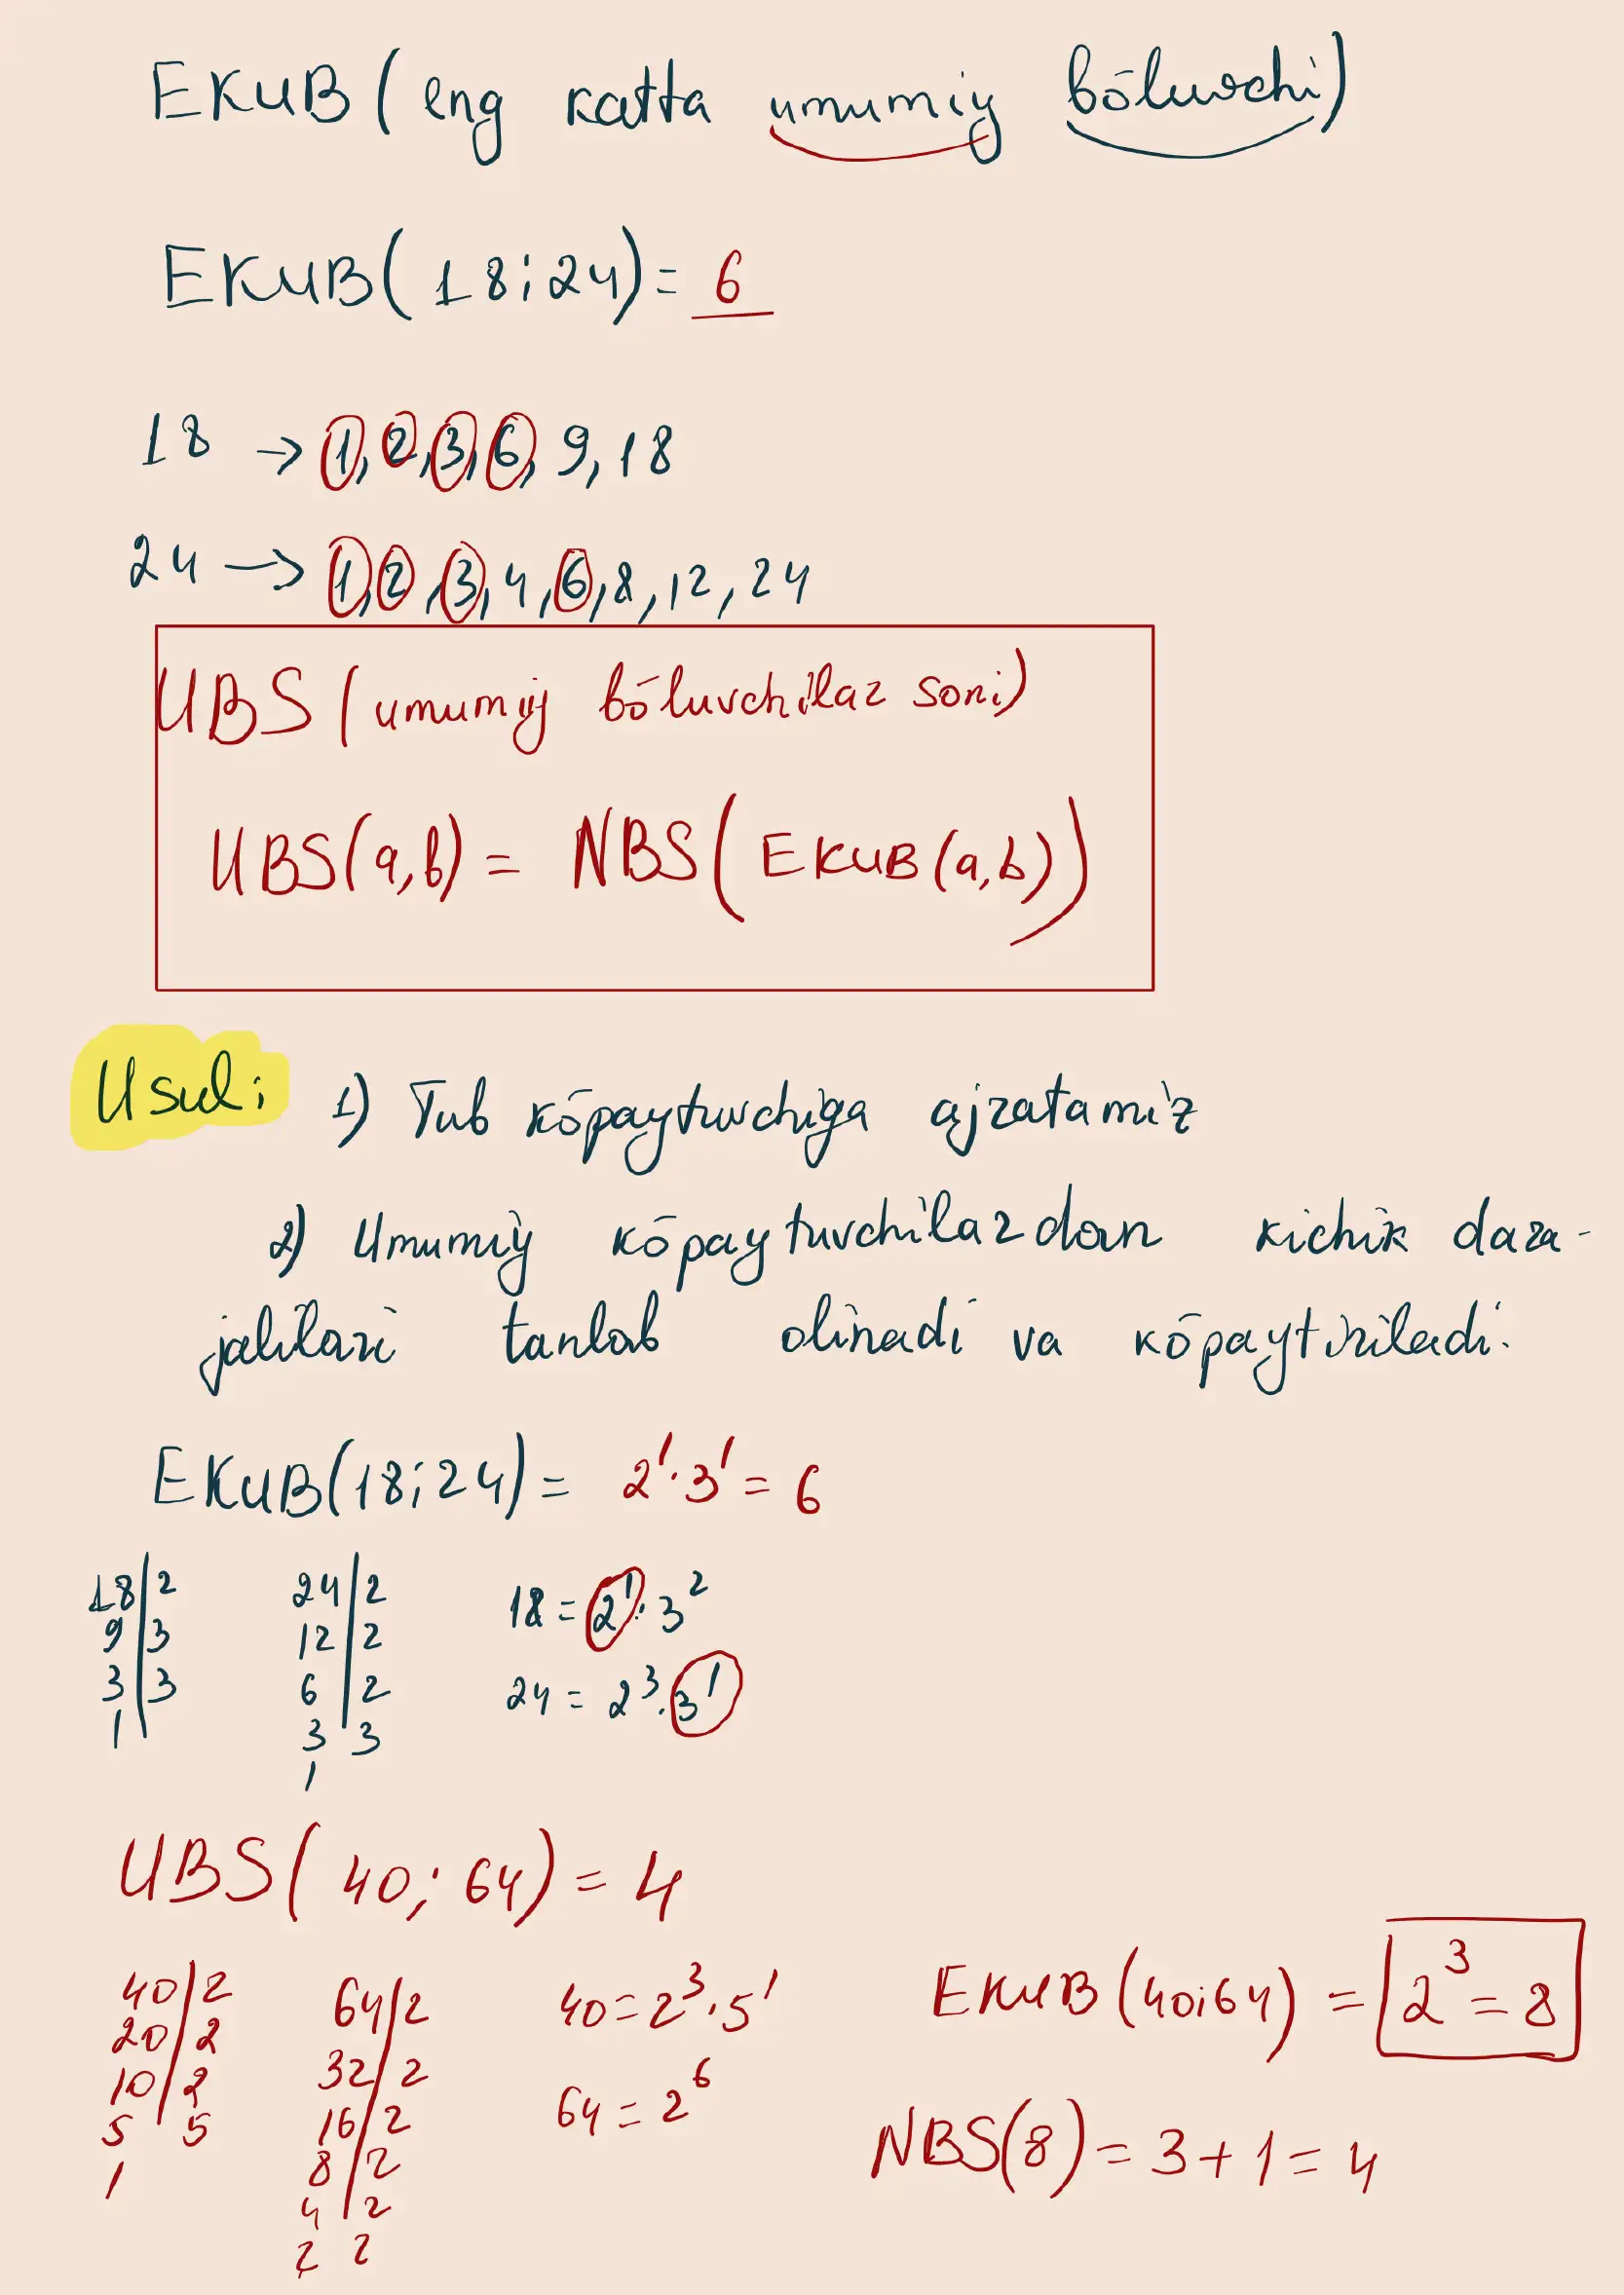 EKUB (eng katta umumiy bōluvchi)
EKUB(18;24)= 6
18 → 1, 2, 3, 6, 9, 18
24 → 1, 2, 3, 4, 6, 8, 12, 24
UBS (umumiy bōluvchilar soni)
UBS(a,b) = NBS(EKUB(a,b))
Usuli 1) Tub kōpaytuvchiga ajratamiz
2) Umumiy kōpaytuvchilardan kichik dara-
jalilari tanlab olinadi va kōpaytiriladi.
EKUB(18;24) = 2¹·3¹ = 6
18|2 24|2 18 = 2¹·3²
9|3 12|2
3|3 6|2 24 = 2³·3¹
1| 3|3
1
UBS(40;64) = 4
40|2 64|2 40=2³·5¹ EKUB(40;64) = 2³ = 8
20|2 32|2
10|2 16|2 64 = 2⁶ NBS(8) = 3+1 = 4
5 5 8|2
1 4|2
2 2